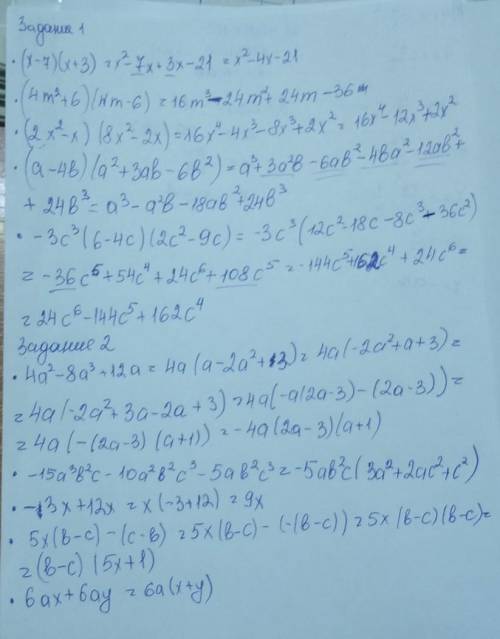 Задание 1
• (x-7)(x+3) = x²-7x+3x-21 = x²-4x-21
• (4m³+6)(4m-6) = 16m³-24m²+24m-36
• (2x²-x)(8x²-2x) = 16x⁴-4x³-8x³+2x² = 16x⁴-12x³+2x²
• (a-4b)(a²+3ab-6b²) = a³+3a²b-6ab²-4ba²-12ab²+
+24b³ = a³-a²b-18ab²+24b³
• -3c³(6-4c)(2c²-9c) = -3c³(12c²-18c-8c³-36c²)
= -36c⁵+54c⁴+24c⁶+108c⁵ = -144c⁵+162c⁴+24c⁶ =
= 24c⁶-144c⁵+162c⁴
Задание 2
• 4a²-8a³+12a = 4a(a-2a²+3) = 4a(-2a²+a+3) =
= 4a(-2a²+3a-2a+3) = 4a(-a(2a-3)-(2a-3)) =
= 4a(-(2a-3)(a+1)) = -4a(2a-3)(a+1)
• -15a³b²c-10a²b²c³-5ab²c³ = -5ab²c(3a²+2ac²+c²)
• -3x+12x = x(-3+12) = 9x
• 5x(b-c)-(c-b) = 5x(b-c)-(-(b-c)) = 5x(b-c)(b-c) =
= (b-c)(5x+1)
• 6ax+6ay = 6a(x+y)